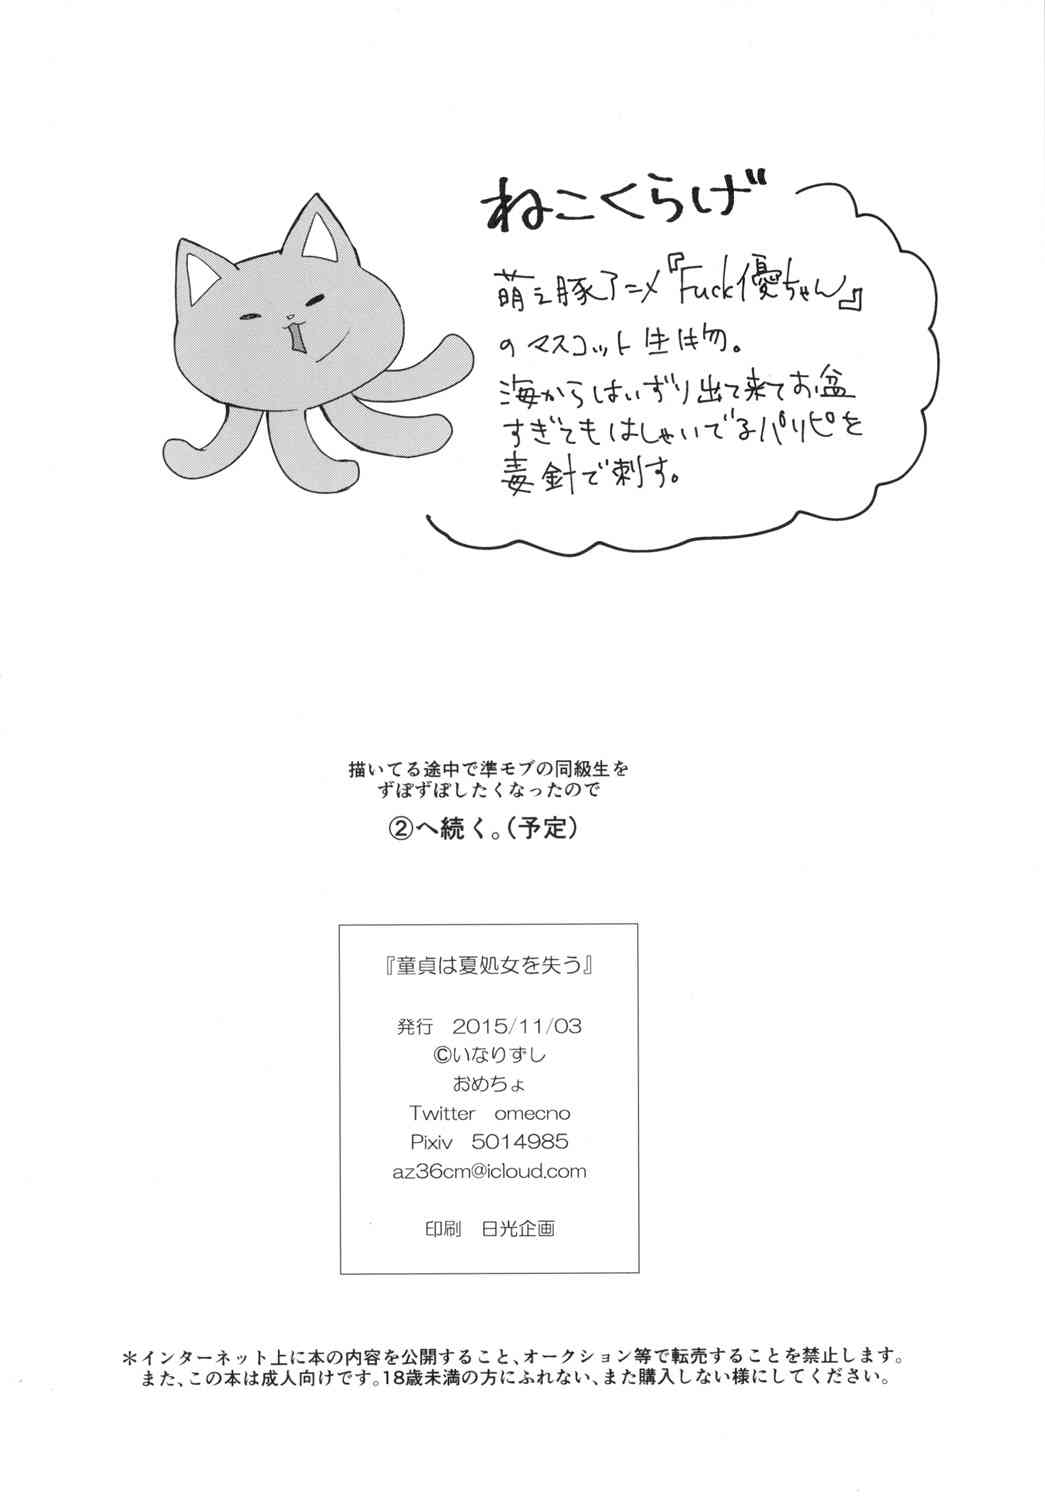 ねこくらげ
萌え豚アニメ『Fuck優ちゃん』
のマスコット生け物。
海からはいずり出て来てお盆
すぎてもはしゃいでるパリピを
毒針で刺す。
描いてる途中で準モブの同級生を
ずぽずぽしたくなったので
②へ続く。(予定)
『童貞は夏処女を失う』
発行 2015/11/03
©いなりずし
おめちょ
Twitter omecno
Pixiv 5014985
az36cm@icloud.com
印刷 日光企画
＊インターネット上に本の内容を公開すること、オークション等で転売することを禁止します。
また、この本は成人向けです。18歳未満の方にふれない、また購入しない様にしてください。